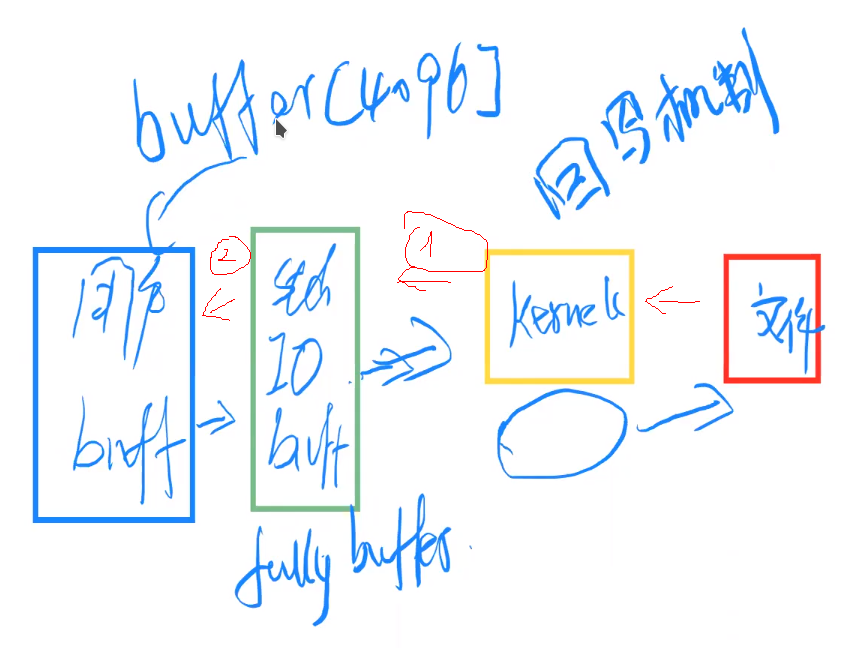 buffer[4096]
回写机制
用户
buff
2
std
IO
buff
1
kernel
文件
fully buffer.